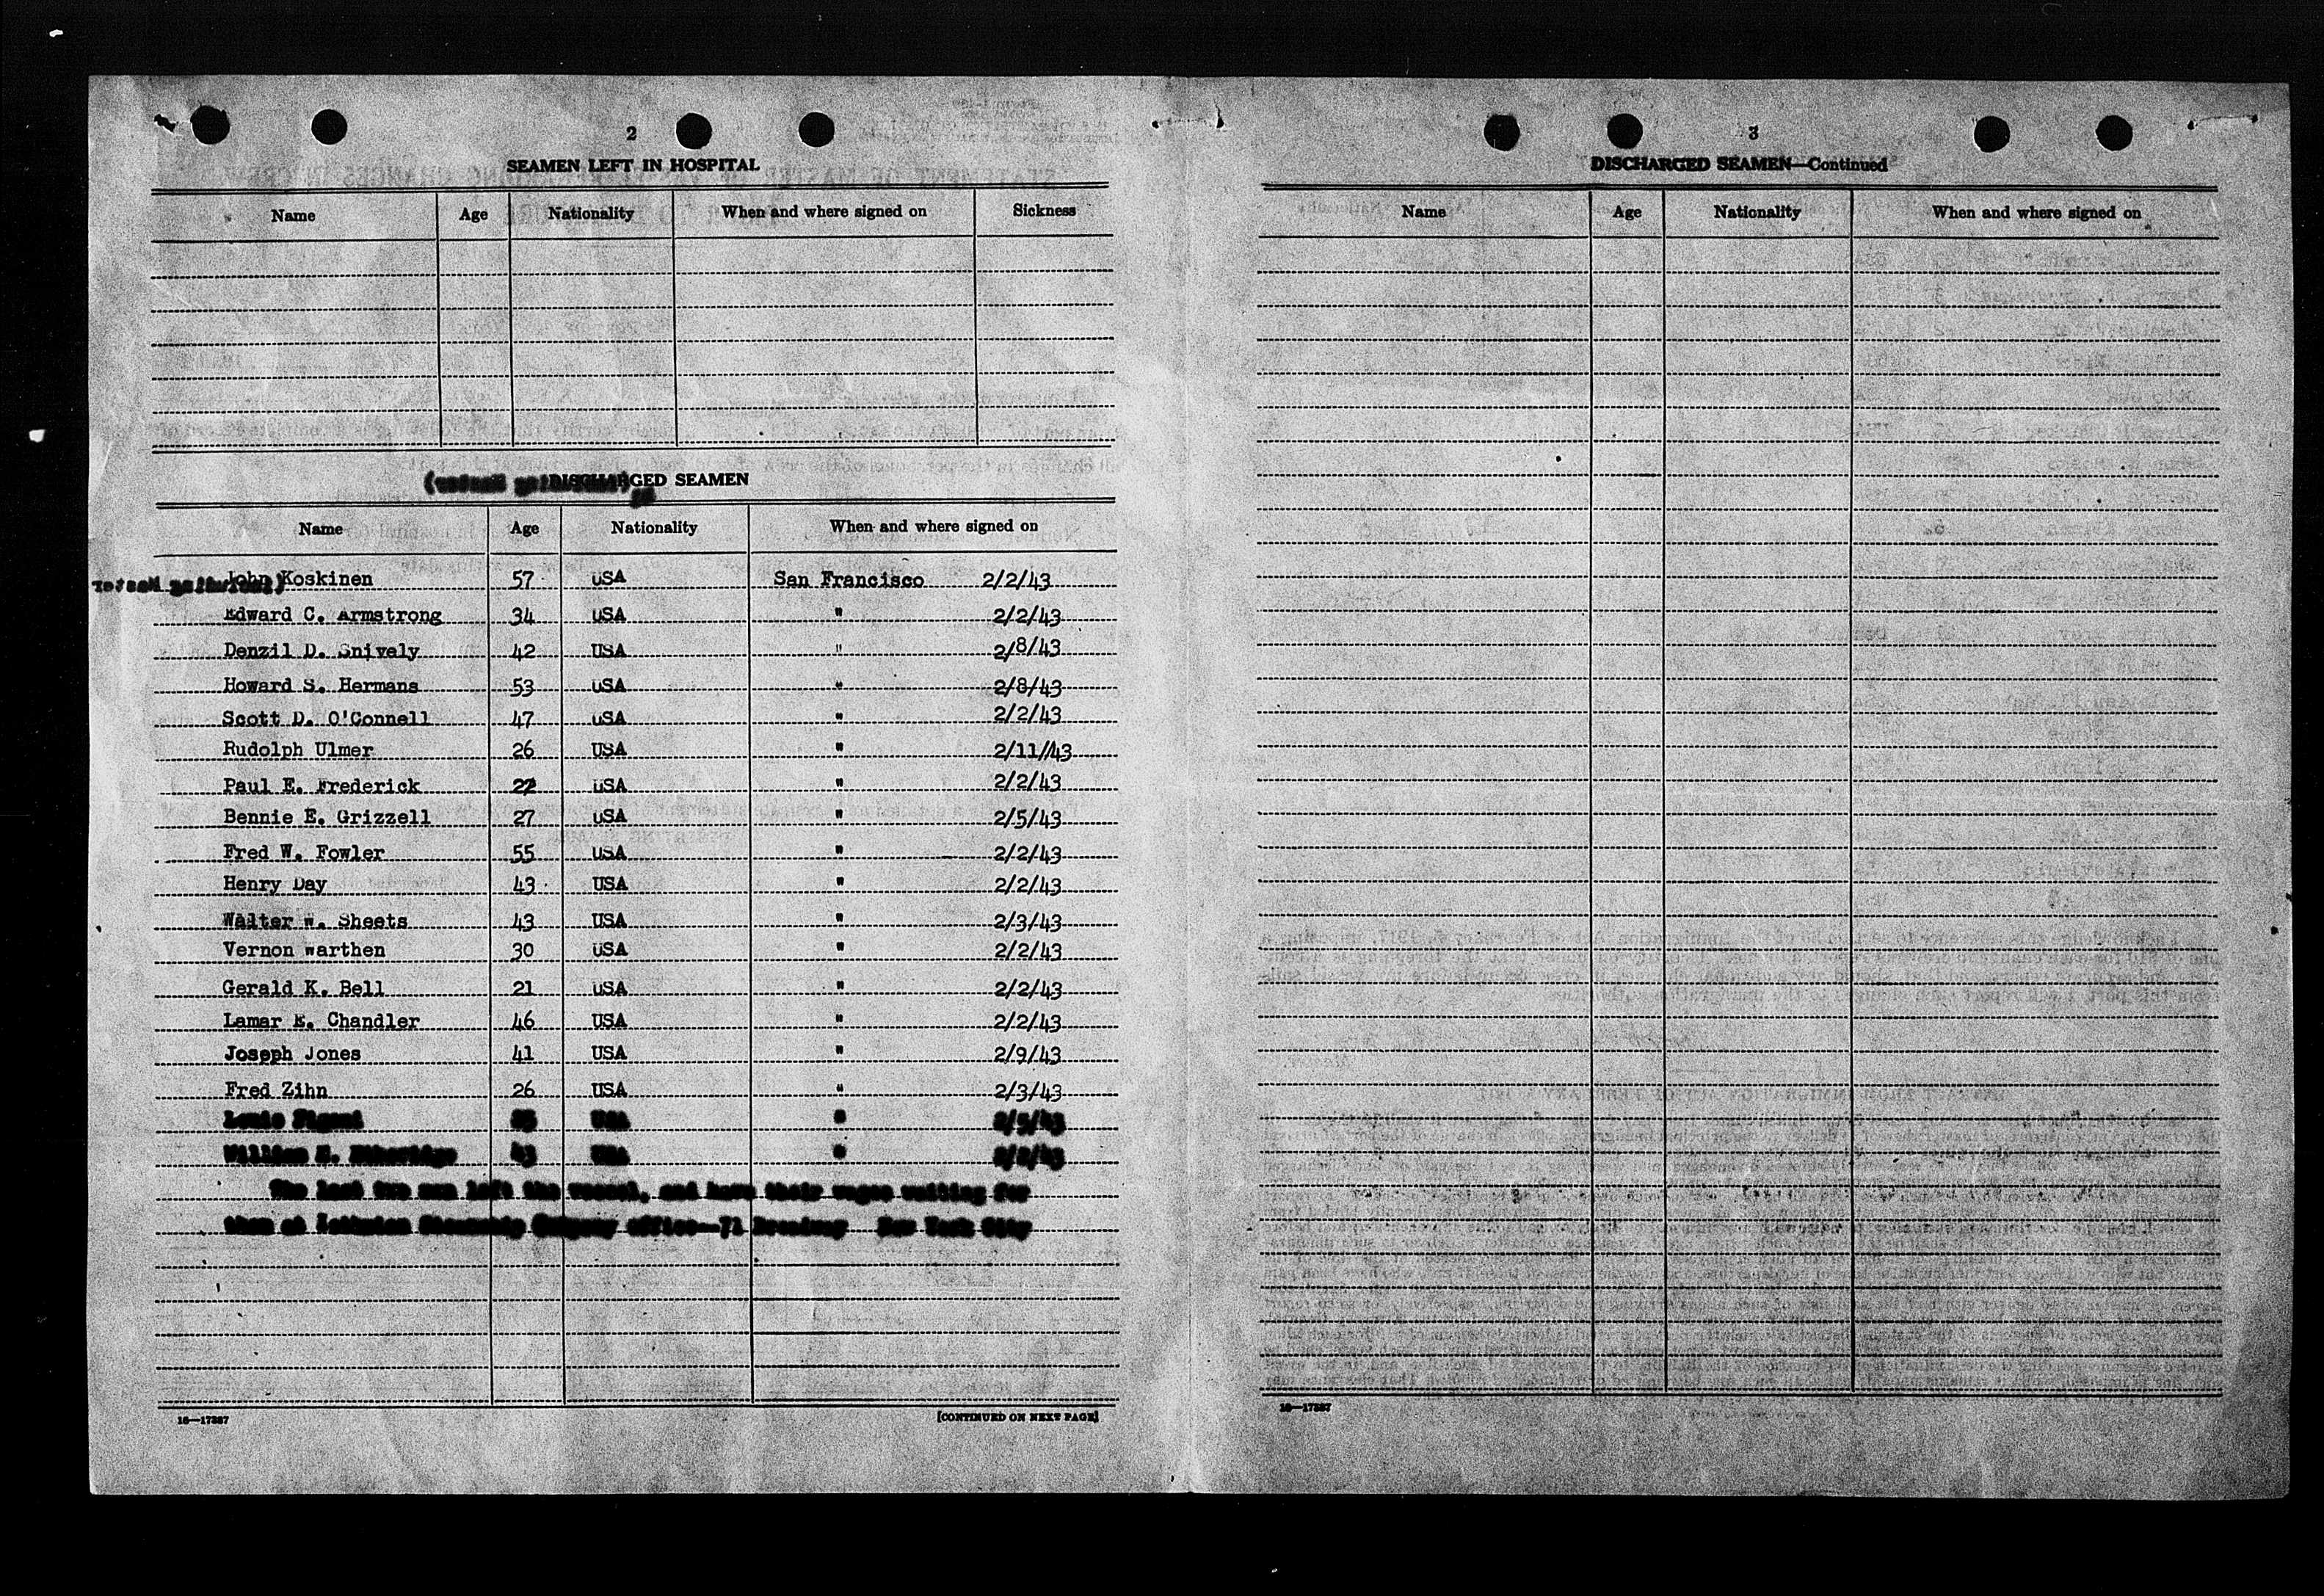 2
SEAMEN LEFT IN HOSPITAL
Name Age Nationality When and where signed on Sickness
DISCHARGED SEAMEN
Name Age Nationality When and where signed on
John Koskinen 57 USA San Francisco 2/2/43
Edward C. Armstrong 34 USA " 2/2/43
Denzil D. Snively 42 USA " 2/8/43
Howard S. Hermans 53 USA " 2/8/43
Scott D. O'Connell 47 USA " 2/2/43
Rudolph Ulmer 26 USA " 2/11/43
Paul E. Frederick 22 USA " 2/2/43
Bennie E. Grizzell 27 USA " 2/5/43
Fred W. Fowler 55 USA " 2/2/43
Henry Day 43 USA " 2/2/43
Walter W. Sheets 43 USA " 2/3/43
Vernon Warthen 30 USA " 2/2/43
Gerald K. Bell 21 USA " 2/2/43
Lamar E. Chandler 46 USA " 2/2/43
Joseph Jones 41 USA " 2/9/43
Fred Zihn 26 USA " 2/3/43
Louis USA " 2/5/43
William E. Etheridge 43 USA " 2/2/43
The last two men left the vessel, and have their wages waiting for
them at Steamship Company office--71 Broadway New York City
16—17387
[CONTINUED ON NEXT PAGE]
3
DISCHARGED SEAMEN—Continued
Name Age Nationality When and where signed on
16—17387